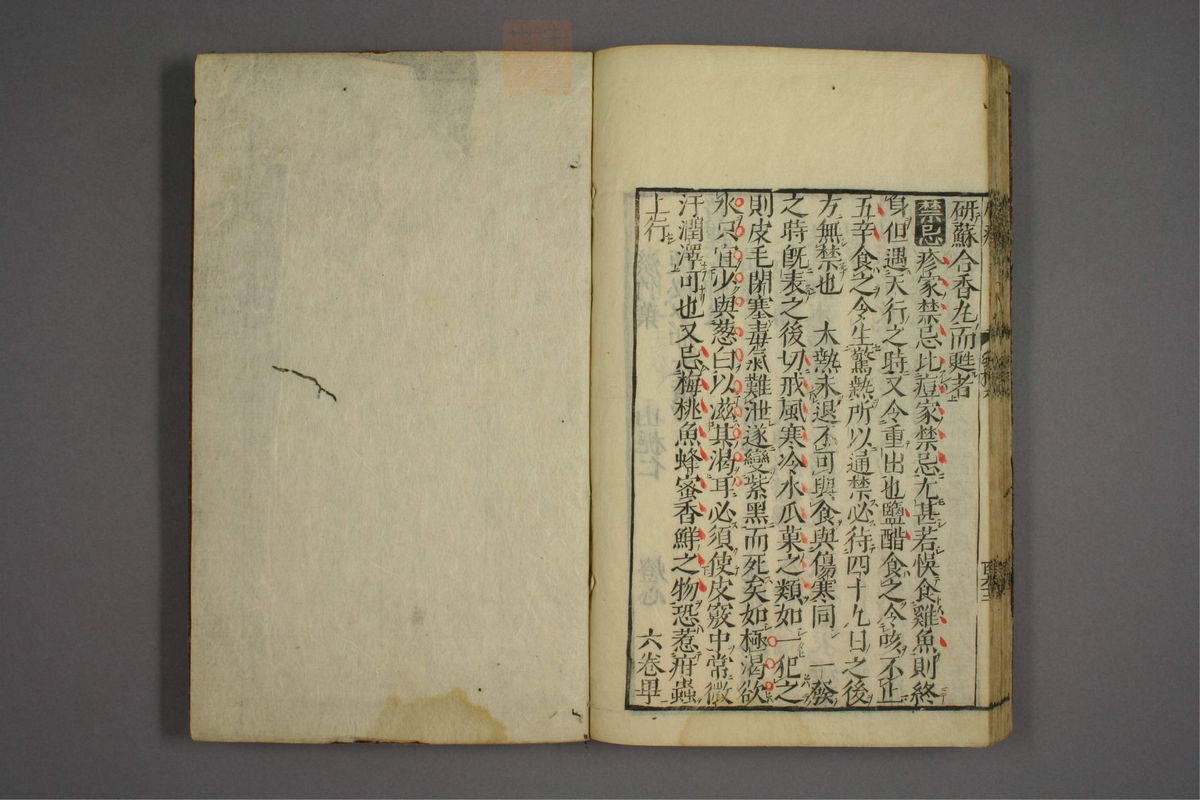 研蘇合香丸而甦者
禁忌 疹家禁忌比痘家禁忌尤甚若悞食雞魚則終
身但遇天行之時又令重出也鹽醋食之令咳不止
五辛食之令生驚熱所以通禁必待四十九日之後
方無禁也 大熱未退不可與食與傷寒同 一發
之時既表之後切戒風寒冷水瓜菓之類如一犯之
則皮毛閉塞毒氣難泄遂變紫黑而死矣如極渴欲
水只宜少與葱白以滋其渴耳必須使皮竅中常微
汗潤澤可也又忌梅桃魚蜂蜜香鮮之物恐惹疳蟲
上行
六卷畢